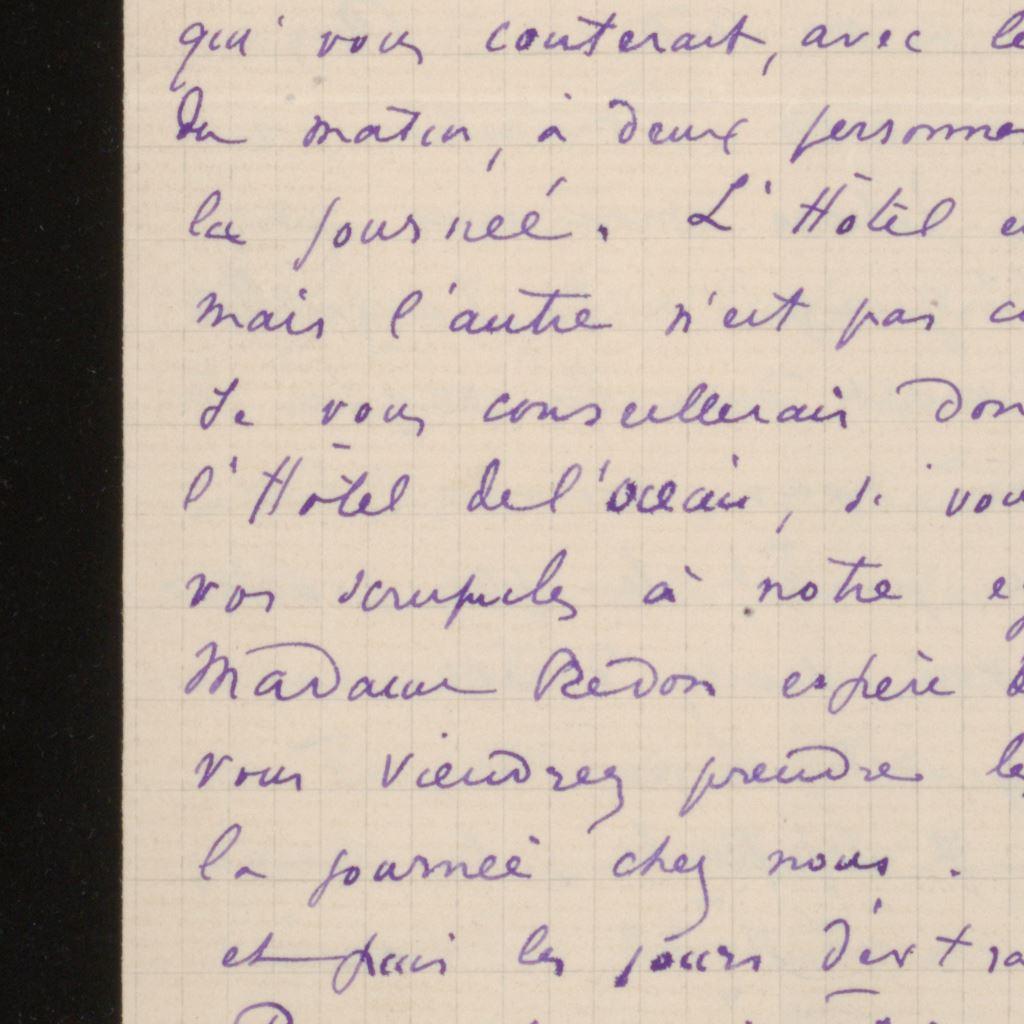 qui vous conterait, avec le
du matin, à deux personne
la journeé. L'Hôtel
mais l'autre n'est pas
Je vous conseillerais don
l'Hôtel de l'océan, si vou
vos scrupules à notre
Madame Redon espère
vous viendrez prendre le
la journeé chez nous.
et puis les jours d'extra